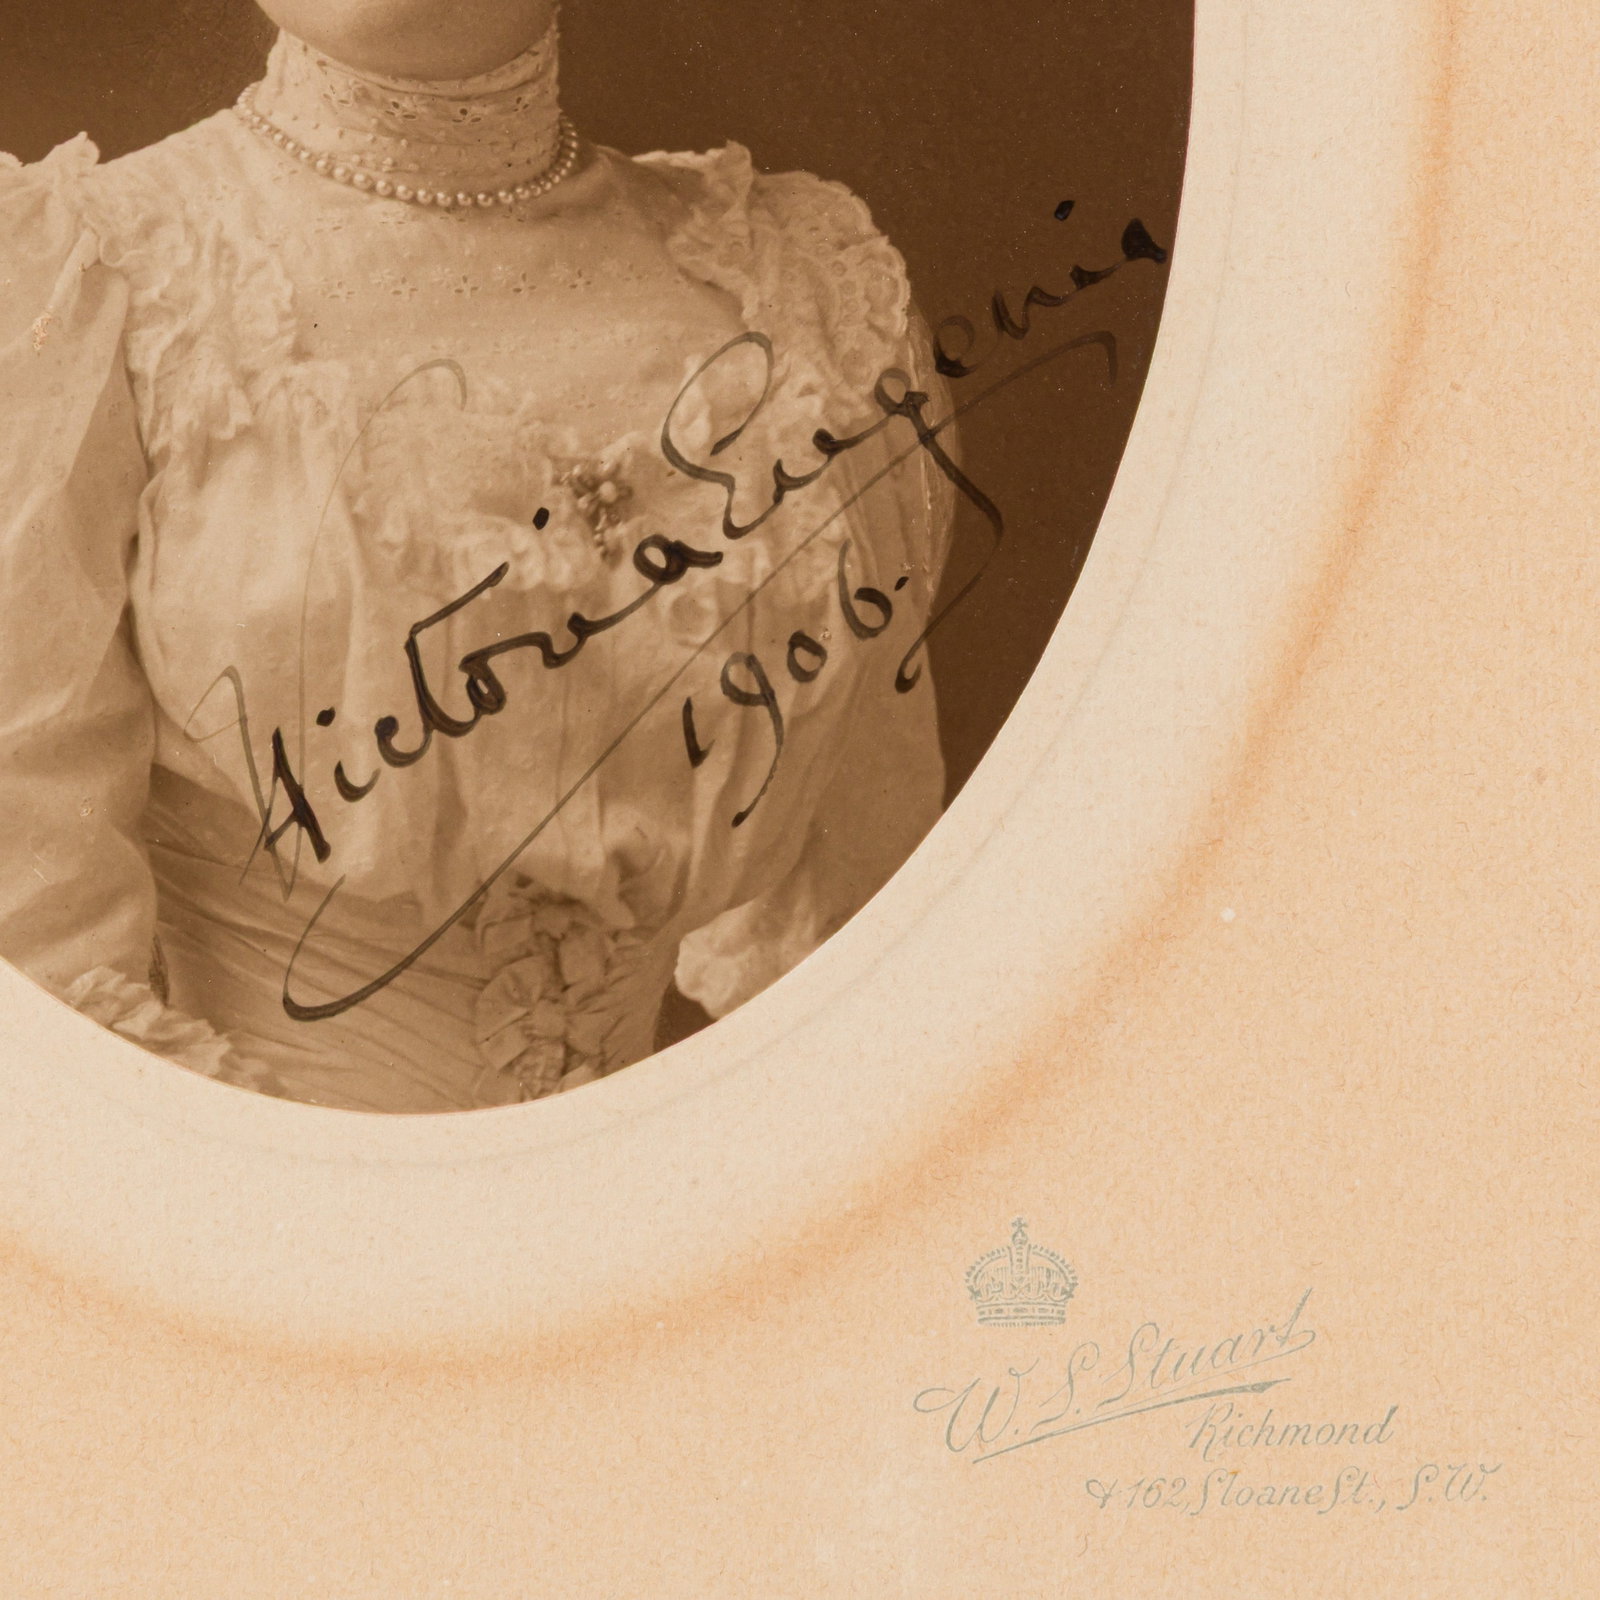 Victoria Eugenia
1906.
W. S. Stuart
Richmond
& 162, Sloane St., S.W.